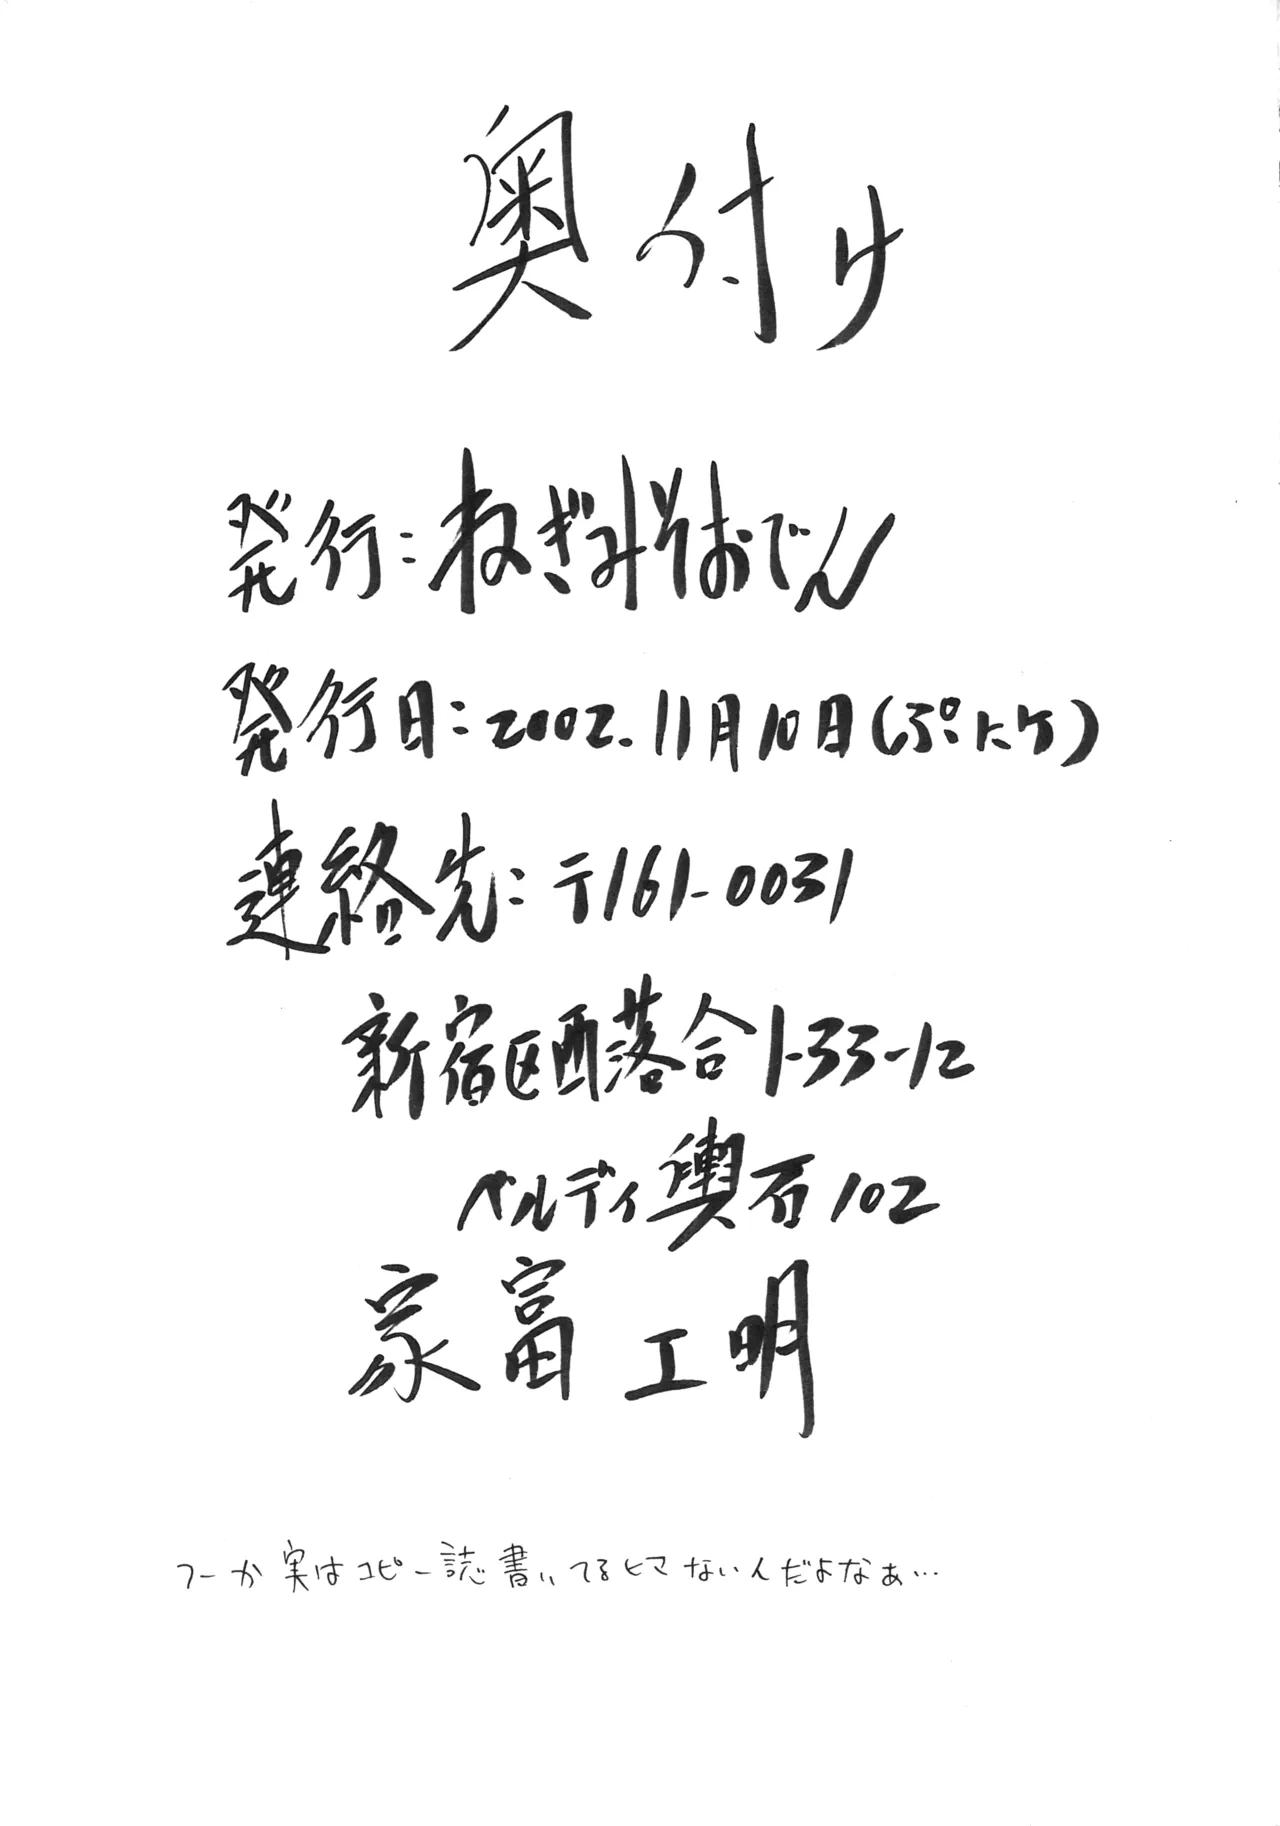 奥付け
発行:ねぎみそおでん
発行日:2002.11月10日(ぷにケ)
連絡先:〒161-0031
新宿区西落合1-33-12
ベルディ輿石102
家富工明
フーか実はコピー誌書いてるヒマないんだよなぁ…